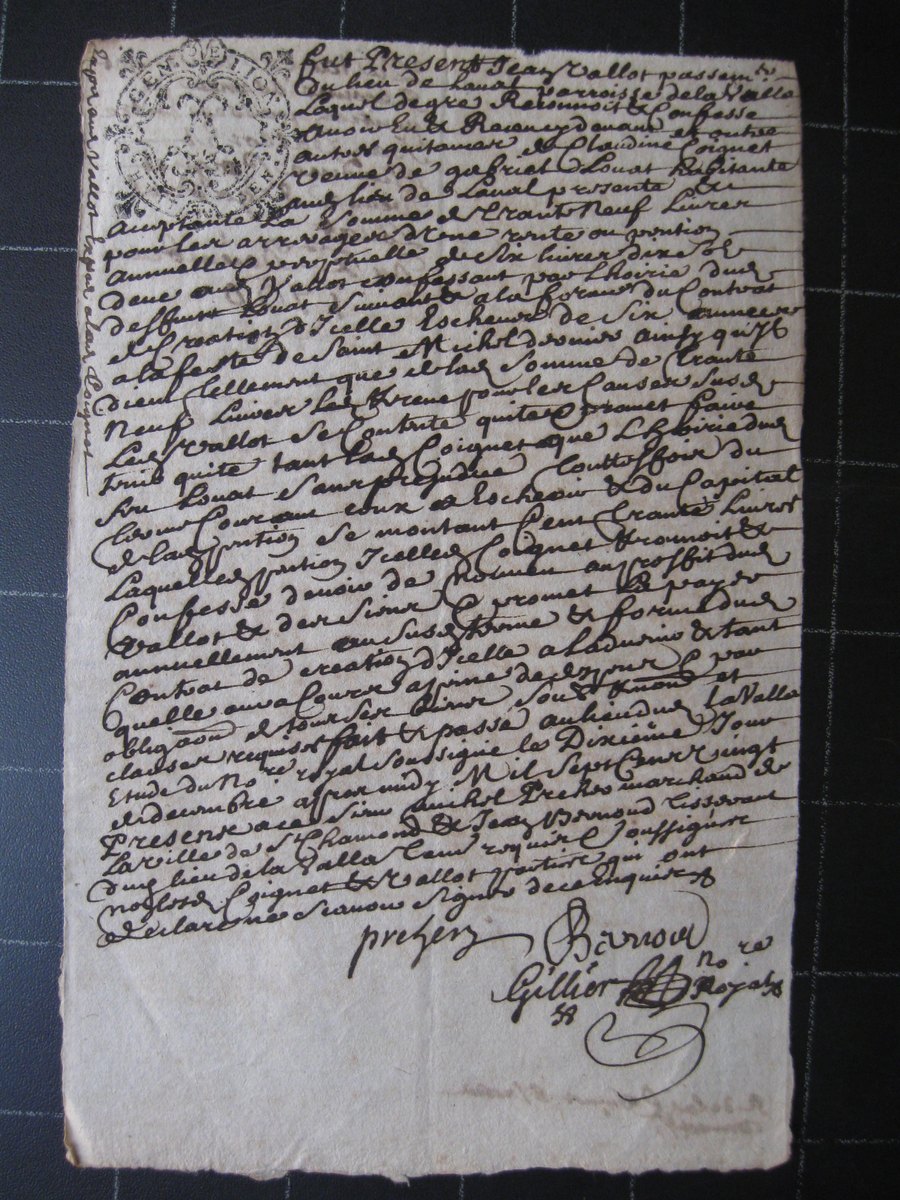 GEN DE LION
fut Present Jean Vallot passem.r
du lieu de Laval parroisse de la Valla
Lequel de gre Reconnoit & Confesse
avoir Eu & Receu cy devant et outre
autres quitances de Claudine Coignet
vefve de gabriel Louat habitante
au lieu de Laval presente &
acceptante La Somme de Trante Neuf Livres
pour les arrerages d'Une rente ou pention
annuelle & perpetuelle de Six livres dix Sols
deue aud Vallot confessant par Lhoirie dud
deffunt Louat Suivant & a la forme du Contrat
de Creation d'Icelle Escheues de Six années
a la feste de Saint Michel dernier ainsy qu'Ils
dient Tellement que de lad Somme de Trante
Neuf Livres Led pour les Causes susd
Led Vallot Se Contente quitte & Promet faire
tenir quite tant lad Coignet que Lhoirie dud
feu Louat Sans prejudice Touttesfois du
Terme Courant ceux a Escheoir & du Capital
de lad pention Se montant Cent Trante Livres
Laquelle pention Icelle Coignet reconnoit &
Confesse devoir de Nouveau au proffit dud
Vallot & des Siens & promet La payer
annuellement au Susd Terme & forme dud
Contrat de creation d'Icelle a Ladvenir & tant
quelle aura Cours a peine de despens & par
oblig.aon de tous Ses biens Soub.n et
clauses requises fait & passé au lieu dud La Valla
Etude du No.re royal Soussigné le Dixieme Jour
de decembre appres midy Mil Sept Cent vingt
Presents a ce Sieur michel Preher marchand de
La ville de S.t Chamond & Jean Bernoud tisserant
dud lieu de la Valla Temoins requis & Soussignés
non lesd Coignet & Vallot parties qui ont
declaré ne Scavoir Signer de ce Enquis
preher
Bernoud
Gillier no.re Royal